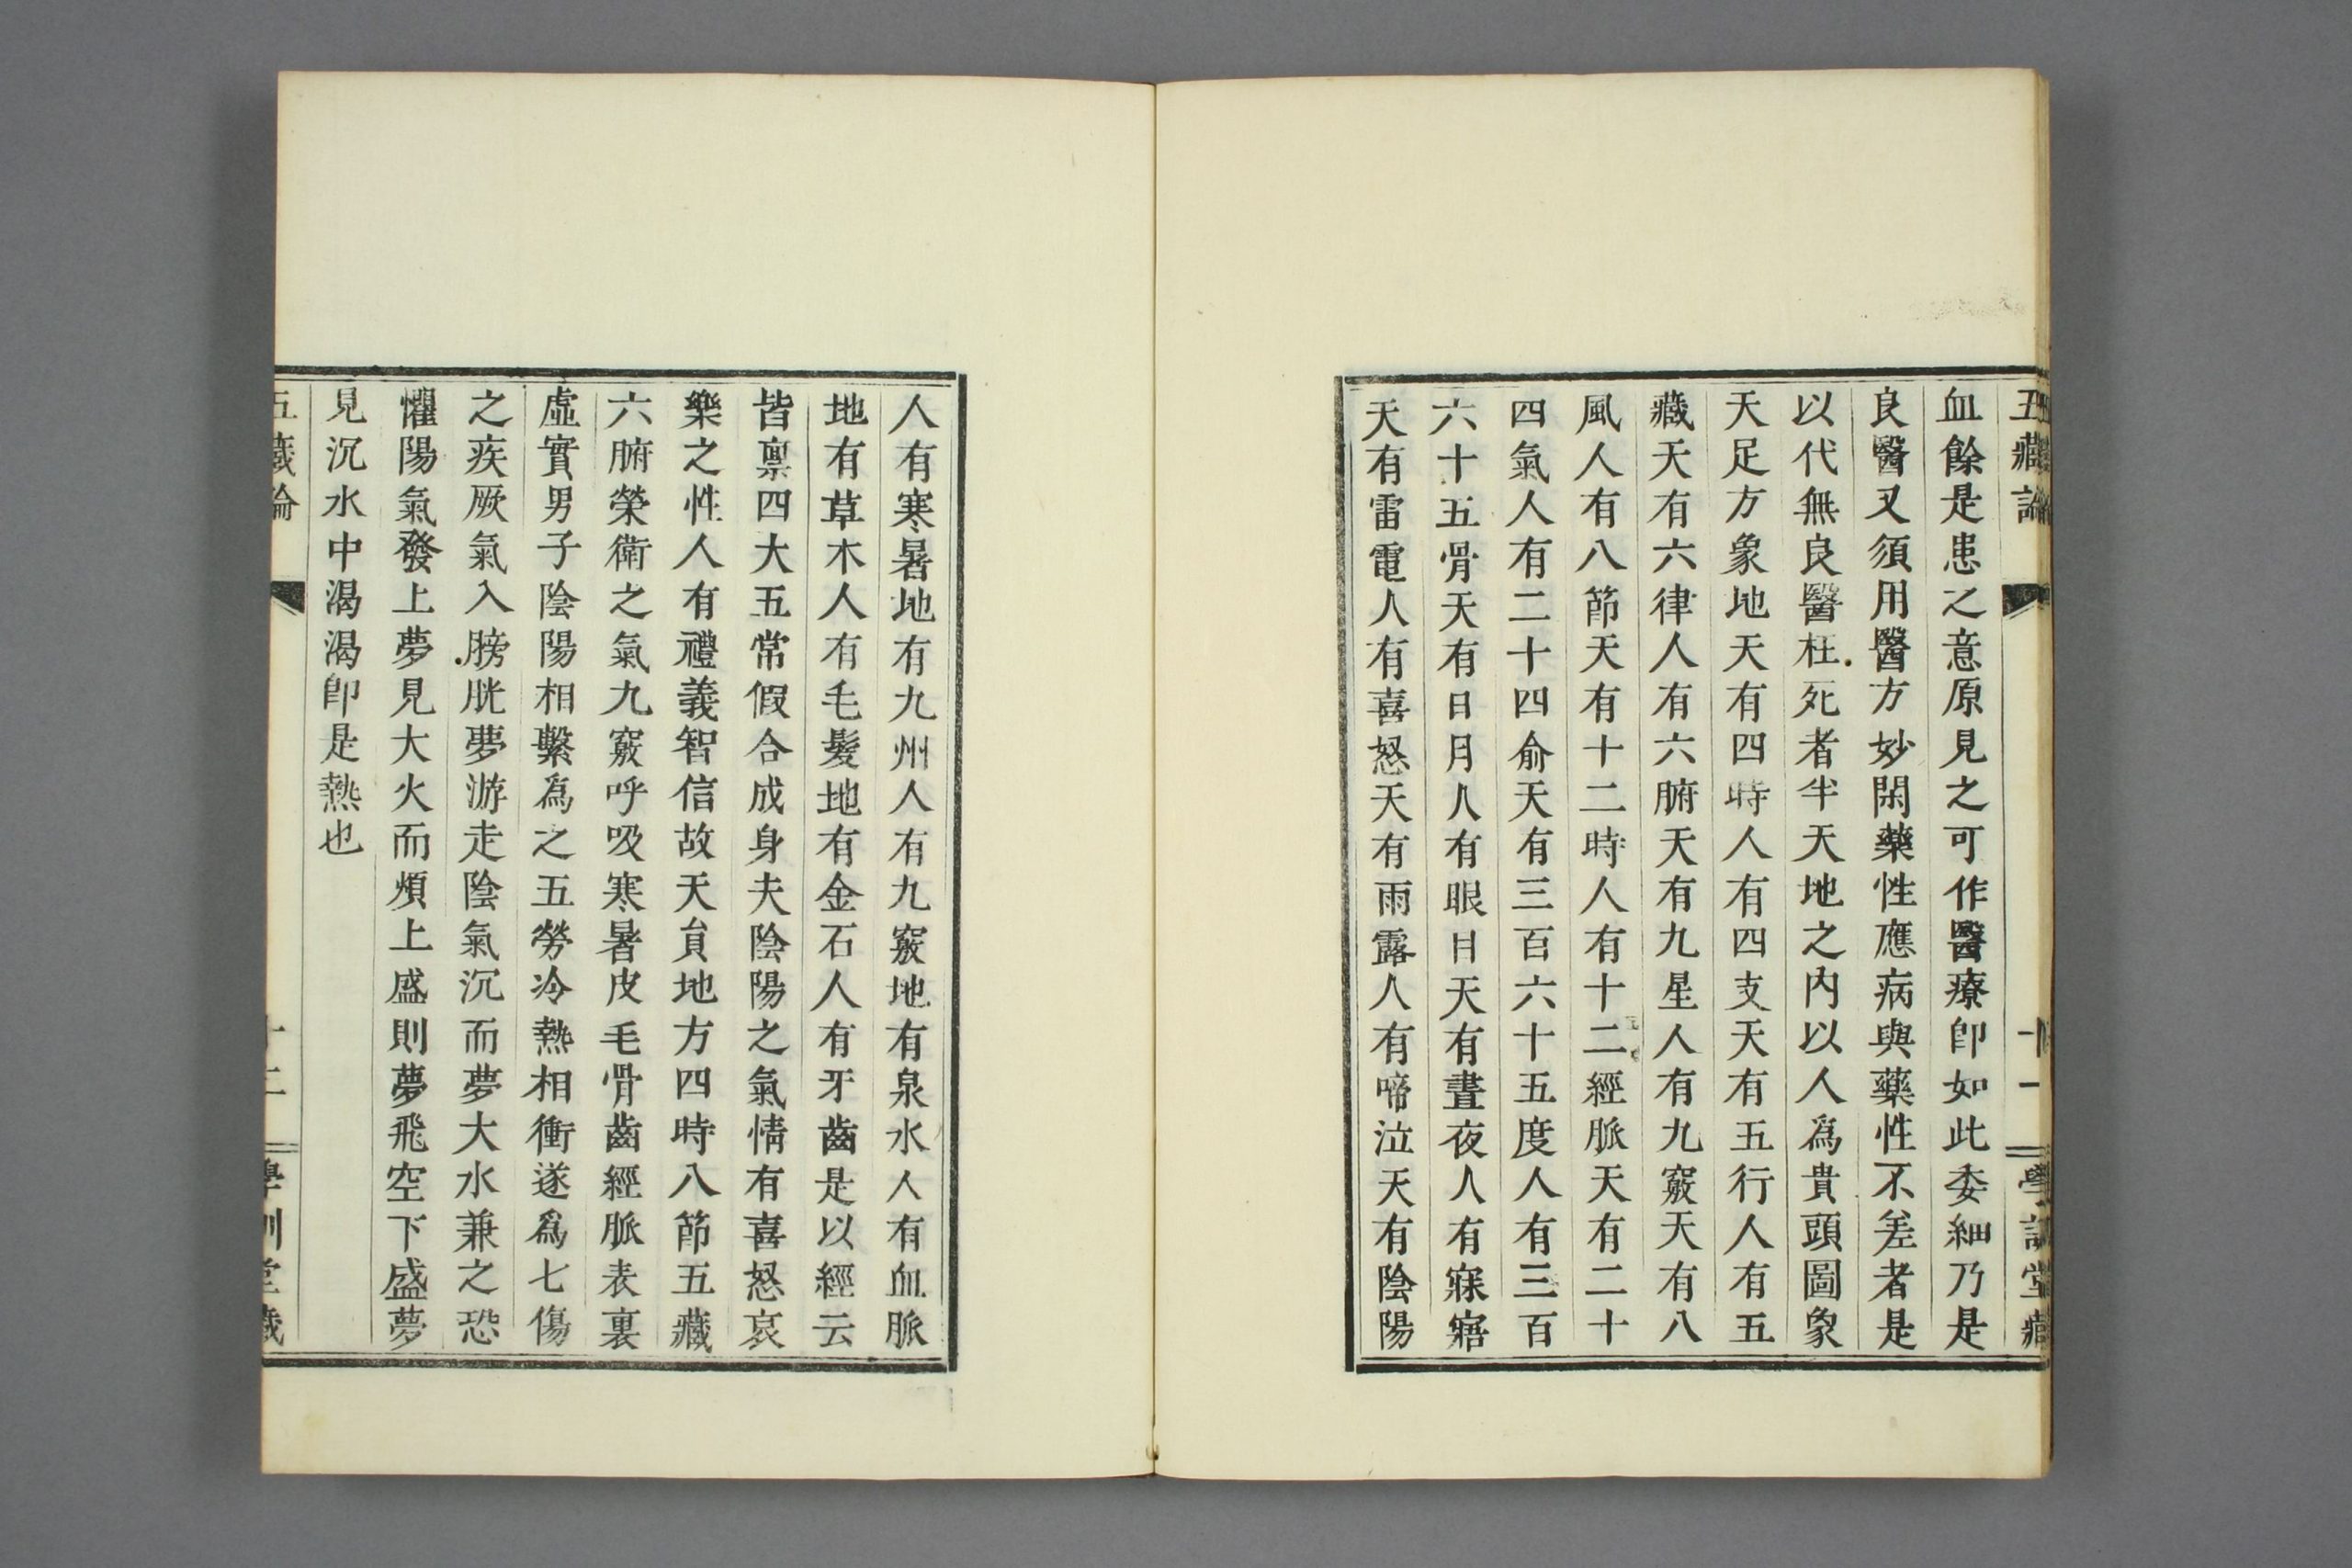 五藏論
十一
學訓堂藏
血餘是患之意原見之可作醫療卽如此委細乃是
良醫又須用醫方妙閑藥性應病與藥性不差者是
以代無良醫枉死者半天地之內以人爲貴頭圓象
天足方象地天有四時人有四支天有五行人有五
藏天有六律人有六腑天有九星人有九竅天有八
風人有八節天有十二時人有十二經脈天有二十
四氣人有二十四俞天有三百六十五度人有三百
六十五骨天有日月人有眼目天有晝夜人有寐寤
天有雷電人有喜怒天有雨露人有啼泣天有陰陽
人有寒暑地有九州人有九竅地有泉水人有血脈
地有草木人有毛髮地有金石人有牙齒是以經云
皆禀四大五常假合成身夫陰陽之氣情有喜怒哀
樂之性人有禮義智信故天貟地方四時八節五藏
六腑榮衛之氣九竅呼吸寒暑皮毛骨齒經脈表裏
虛實男子陰陽相繫爲之五勞冷熱相衝遂爲七傷
之疾厥氣入膀胱夢游走陰氣沉而夢大水兼之恐
懼陽氣發上夢見大火而煩上盛則夢飛空下盛夢
見沉水中渴渴卽是熱也
五藏論
十二
學訓堂藏